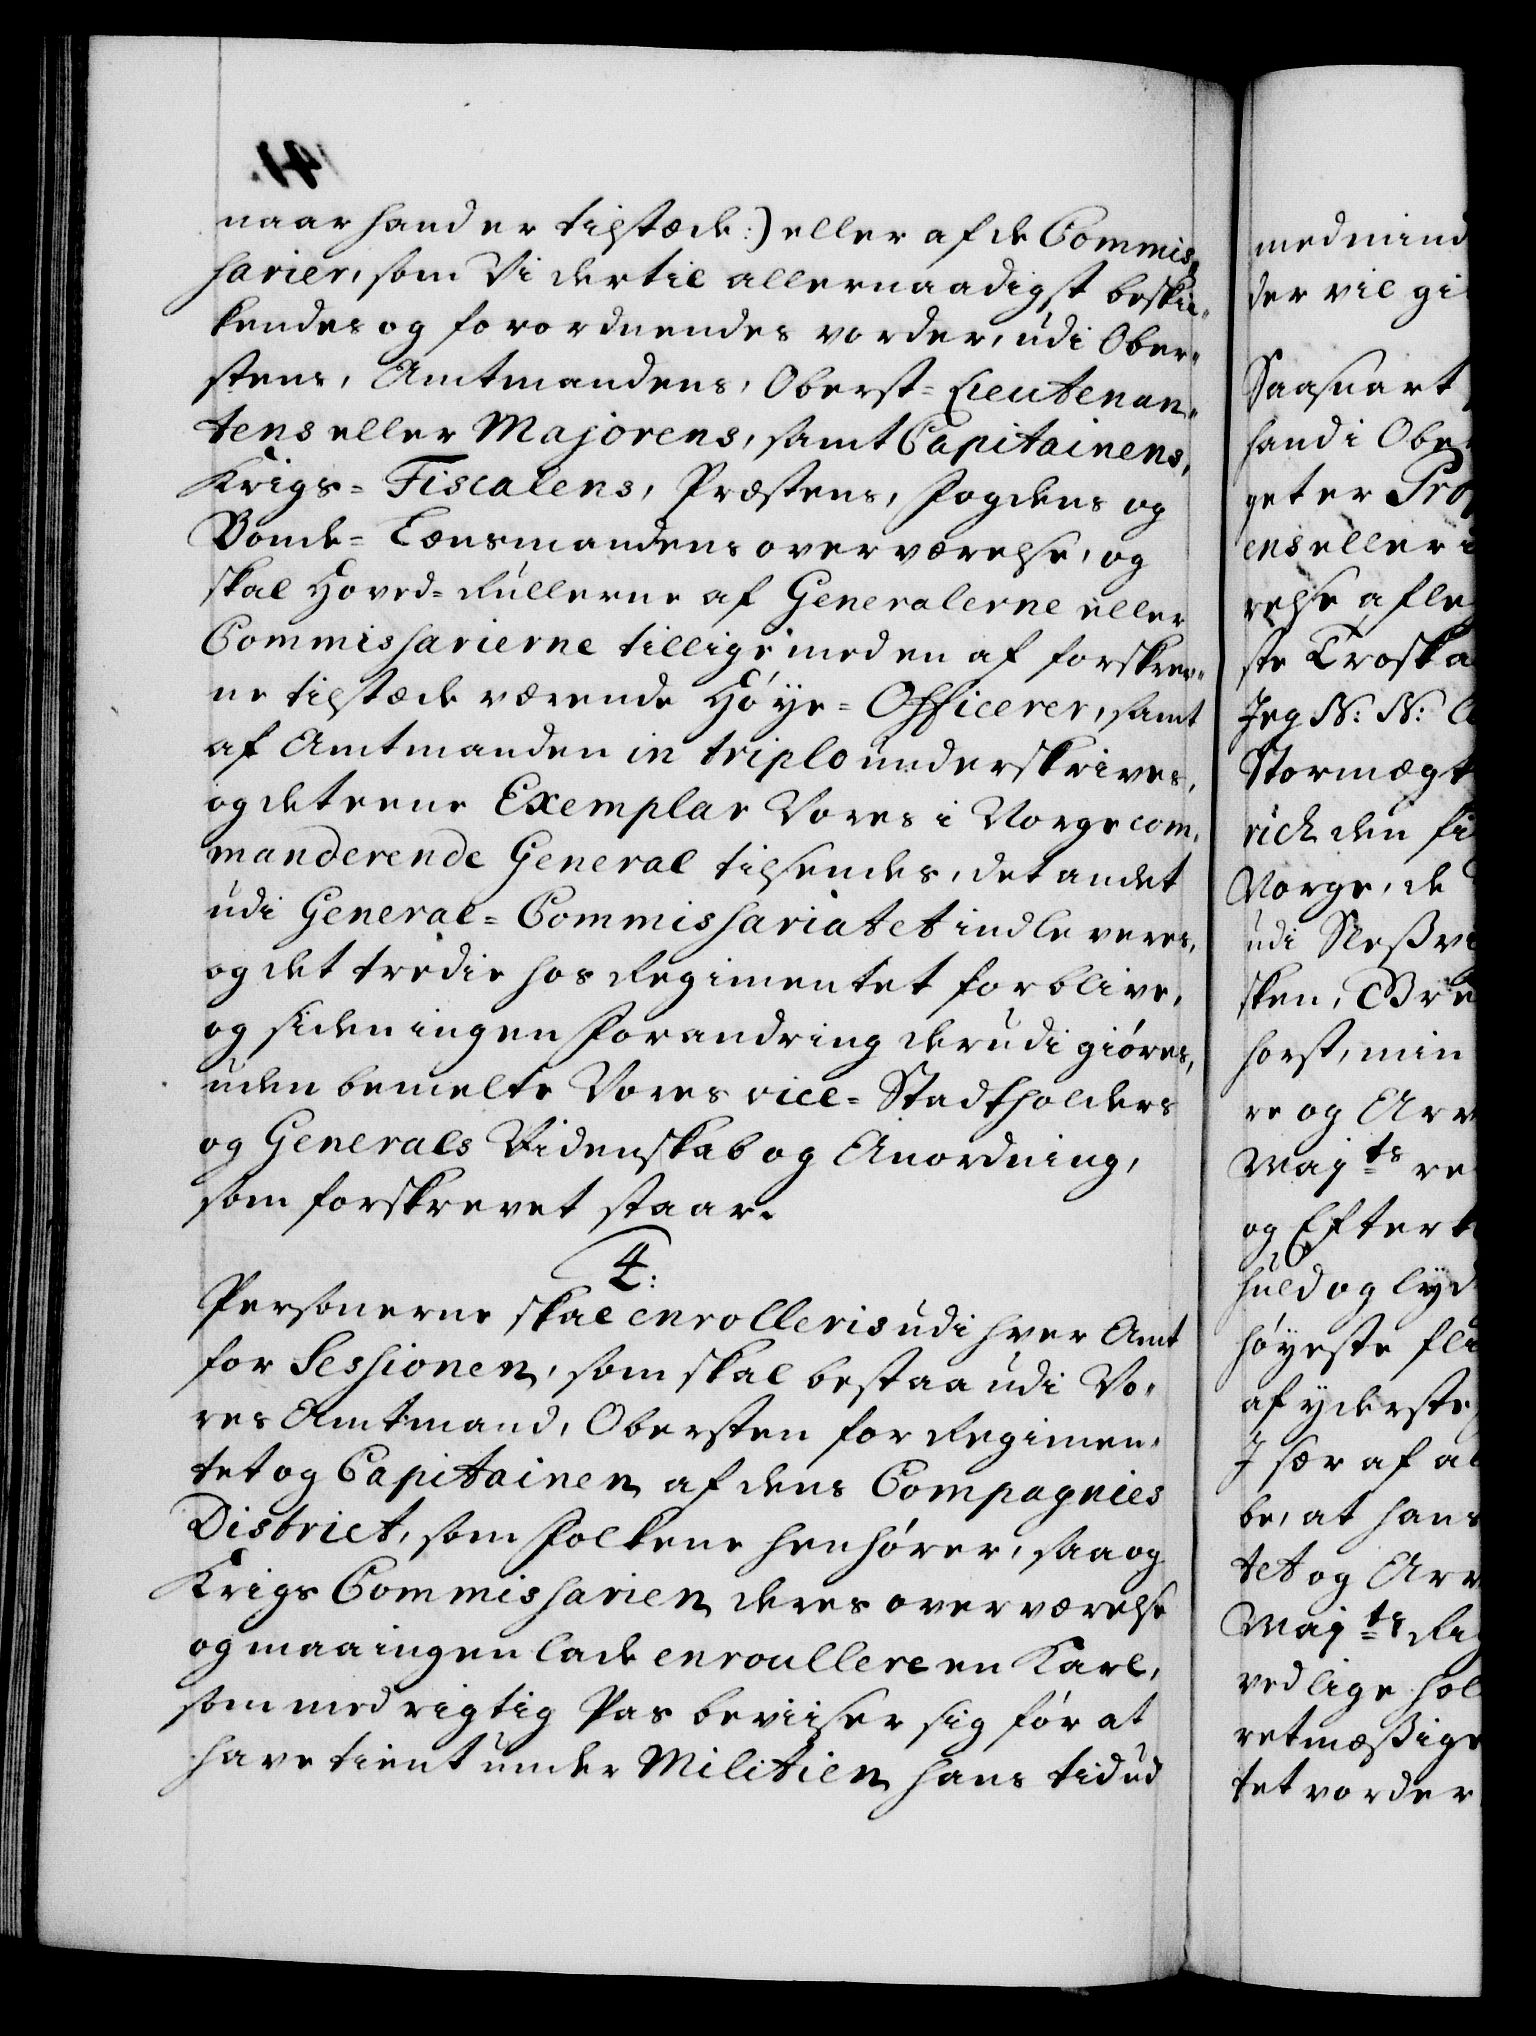 naar hand er tilstæde:) eller af de Commis„
sarier, som Vi dertil allernaadigst beskik„
kendes og forordnendes vorder, udi Ober„
stens, Amtmandens, Oberst=Lieutenan„
tens eller Majorens, samt Capitainens,
Krigs=Fiscalens, Præstens, Fogdens og
Bonde=Lænsmandens overværelse, og
skal Hoved=Rullerne af Generalerne eller
Commissarierne tillige med en af forskrev„
ne tilstæde værende Høye=Officerer, samt
af Amtmanden in triplo underskrives,
og det eene Exemplar Vores i Norge com„
manderende General tilsendes, det andet
udi General=Commissariatet indleveres,
og det tredie hos Regimentet forblive,
og siden ingen Forandring derudi giøres,
uden bemelte Vores vice=Stadtholders
og Generals Videnskab og Anordning,
som forskrevet staar.
4:
Personerne skal enrolleris udi hver Amt
for Sessionen, som skal bestaa udi Vo„
res Amtmand, Obersten for Regimen„
tet og Capitainen af dens Compagnies
District, som Folkene henhører, saa og
Krigs Commissarien deres overværelse
og maa ingen lade enroullere en Karl,
som med rigtig Pas beviiser sig før at
have tient under Militien hans tid ud
med mind
der vil gi
Saasnart
hand i Obe
get er Pro
ens eller
relse afle
ste Troska
Jeg N: N:
Stormægt
rich den fi
Norge, de
udi Sleßvi
sken,
horst, min
re og Arv
Maj:ts re
og Efterk
huld og lyd
høyeste fli
af yderste
I sær af al
be, at hans
tet og Arv
Maj:ts
ved lige hol
retmæßige
tet vorder